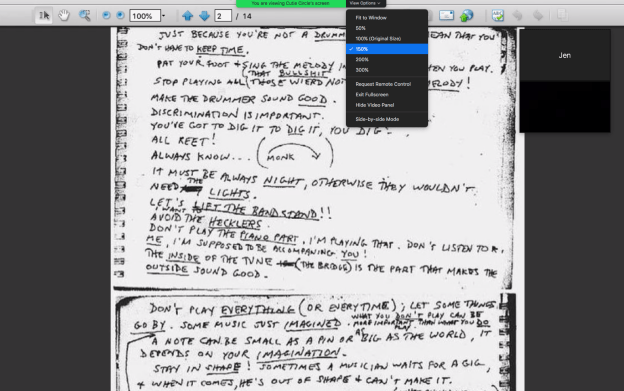 You are viewing Cutie Circle's screen
View Options
2 / 14
100%
Fit to Window
50%
100% (Original Size)
150%
200%
300%
Request Remote Control
Exit Fullscreen
Hide Video Panel
Side-by-side Mode
Jen
JUST BECAUSE YOU'RE NOT A DRUMM EAN THAT YOU
DON'T HAVE TO KEEP TIME.
PAT YOUR FOOT & SING THE MELODY IN HEN YOU PLAY.
STOP PLAYING ALL (THAT BULLSHIT THOSE WIERD NOT MELODY!
MAKE THE DRUMMER SOUND GOOD.
DISCRIMINATION IS IMPORTANT.
YOU'VE GOT TO DIG IT TO DIG IT, YOU DIG?
ALL REET!
ALWAYS KNOW... (MONK
IT MUST BE ALWAYS NIGHT, OTHERWISE THEY WOULDN'T
NEED THE LIGHTS.
LET'S LIFT THE BAND STAND!!
I WANT TO AVOID THE HECKLERS.
DON'T PLAY THE PIANO PART, I'M PLAYING THAT. DON'T LISTEN TO
ME, I'M SUPPOSED TO BE ACCOMPANYING YOU!
THE INSIDE OF THE TUNE (THE BRIDGE) IS THE PART THAT MAKES THE
OUTSIDE SOUND GOOD.
DON'T PLAY EVERYTHING (OR EVERYTIME); LET SOME THINGS
GO BY. SOME MUSIC JUST IMAGINED. WHAT YOU DON'T PLAY CAN BE
MORE IMPORTANT THAN WHAT YOU DO PLAY.
A NOTE CAN BE SMALL AS A PIN OR AS BIG AS THE WORLD, IT
DEPENDS ON YOUR IMAGINATION.
STAY IN SHAPE! SOMETIMES A MUSICIAN WAITS FOR A GIG,
& WHEN IT COMES, HE'S OUT OF SHAPE & CAN'T MAKE IT.